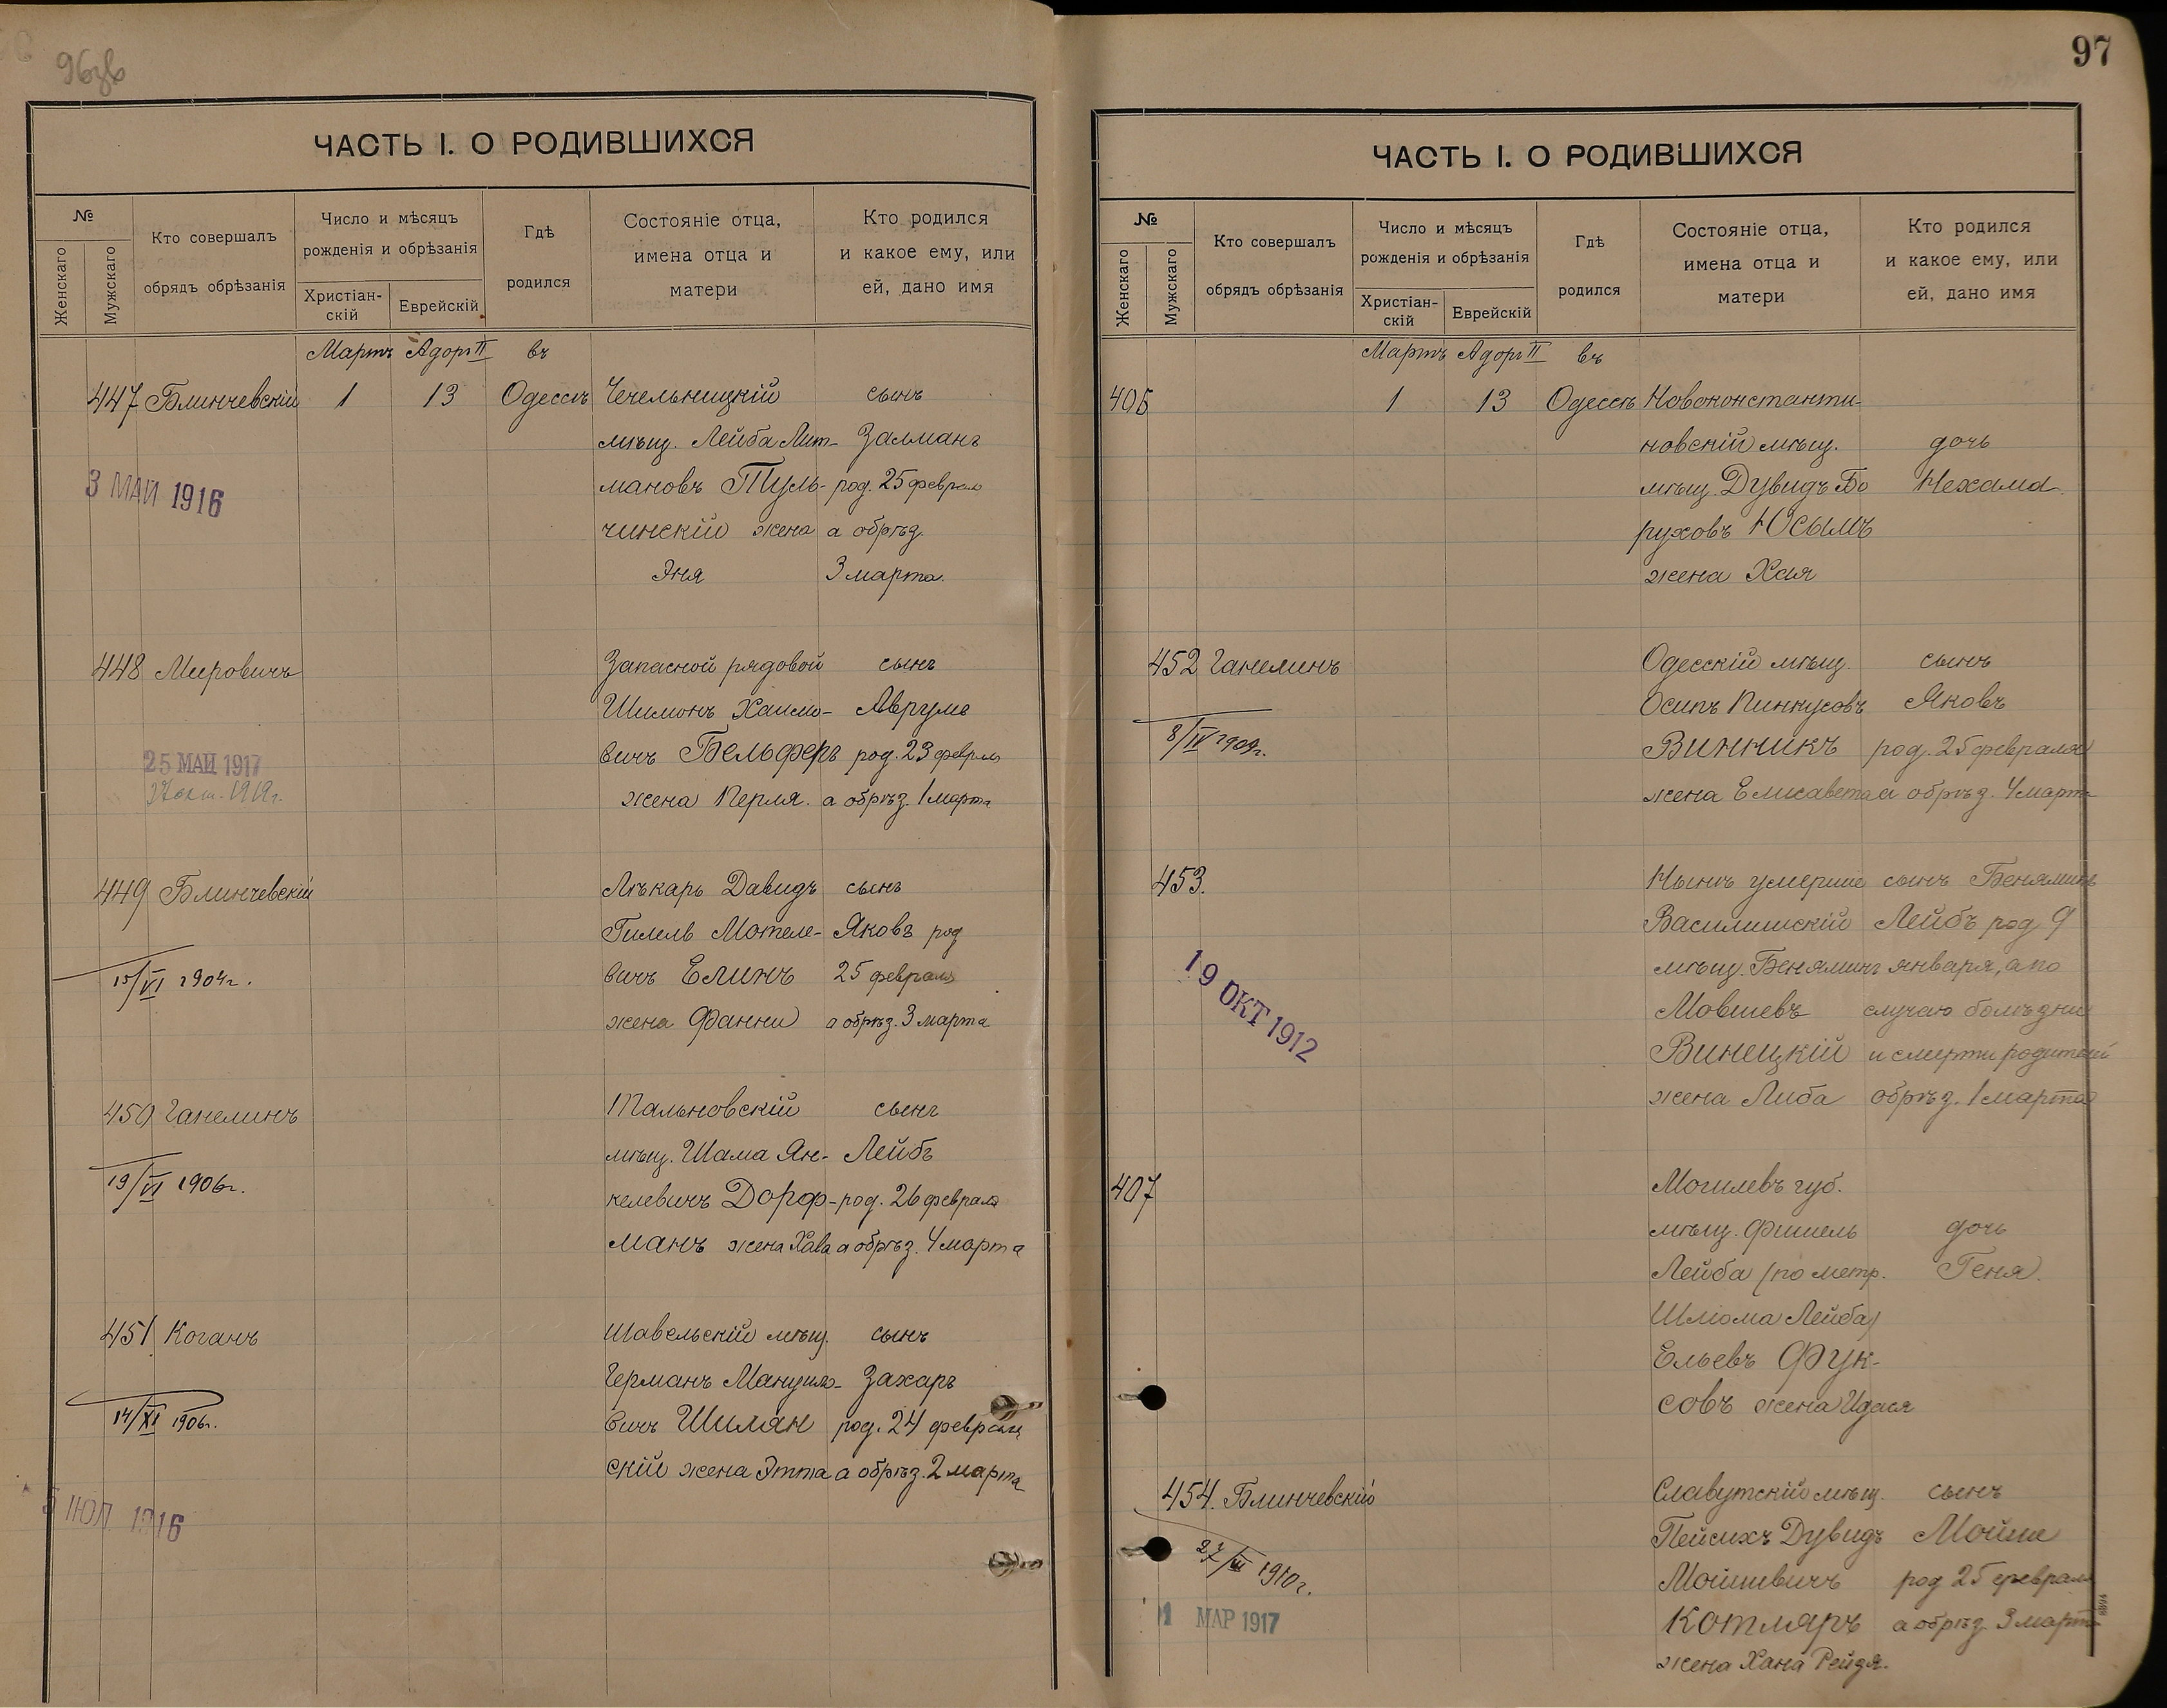 96об
ЧАСТЬ I. О РОДИВШИХСЯ
№
Женскаго
Мужскаго
Кто совершалъ
обрядъ обрѣзанія
Число и мѣсяцъ
рожденія и обрѣзанія
Христіан-
скій
Еврейскій
Гдѣ
родился
Состояніе отца,
имена отца и
матери
Кто родился
и какое ему, или
ей, дано имя
Мартъ Адоръ II въ
447 Блинчевскій 1 13 Одессѣ Чечельницкій сынъ
мѣщ. Лейба Лит- Залманъ
3 МАЙ 1916
мановъ Пуль- род. 25 феврал
чинскій жена а обрѣз.
Эня 3 марта.
448 Мировичъ Запасной рядовой сынъ
Шимонъ Хаимо- Аврумъ
25 МАЙ 1917
вичъ Бельферъ род. 23 феврля
жена Перля. а обрѣз. 1 марта
449 Блинчевскій Лѣкарь Давидъ сынъ
Гилель Мотеле- Яковъ род
15/VI 1904г.
вичъ Елинъ 25 февраля
жена Фанни а обрѣз. 3 марта
450 Ганелинъ Тальновскій сынъ
мѣщ. Шама Ян- Лейбъ
19/VI 1906г.
келевичъ Дорф- род. 26 февраля
манъ жена Хава а обрѣз. 4 марта
451 Коганъ Шавельскій мѣщ. сынъ
Германъ Мануило- Захаръ
14/XI 1906г.
вичъ Шилян род. 24 февраля
скій жена Этта а обрѣз. 2 марта
5 ИЮЛ 1916
97
ЧАСТЬ I. О РОДИВШИХСЯ
№
Женскаго
Мужскаго
Кто совершалъ
обрядъ обрѣзанія
Число и мѣсяцъ
рожденія и обрѣзанія
Христіан-
скій
Еврейскій
Гдѣ
родился
Состояніе отца,
имена отца и
матери
Кто родился
и какое ему, или
ей, дано имя
Мартъ Адоръ II въ
406 1 13 Одессѣ Новоконстанти-
новскій мѣщ. дочь
мѣщ. Дувидъ Бо Нехама
руховъ Юсымъ
жена Хая
452 Ганелинъ Одесскій мѣщ. сынъ
Осипъ Пинкусовъ Яковъ
8/IV 1909г.
Винникъ род. 25 февраля
жена Елисавета а обрѣз. 4 марта
453. Нынѣ умершіе сынъ Беняминъ
Василишскій Лейбъ род 9
мѣщ. Беняминъ января, а по
19 ОКТ 1912
Мовшевъ случаю болѣзни
Винецкій и смерти родителей
жена Либа обрѣз. 1 марта
407 Могилевъ губ.
мѣщ. Фишель дочь
Лейба (по метр. Геня.
Шлома Лейба)
Ельевъ Фук-
совъ жена Идася
454. Блинчевскій Славутскій мѣщ. сынъ
Пейсихъ Дувидъ Мойше
27/III 1910г.
Мошшевичъ род 25 февраля
1 МАР 1917
Котляръ а обрѣз. 3 марта
жена Хана Рейзя.